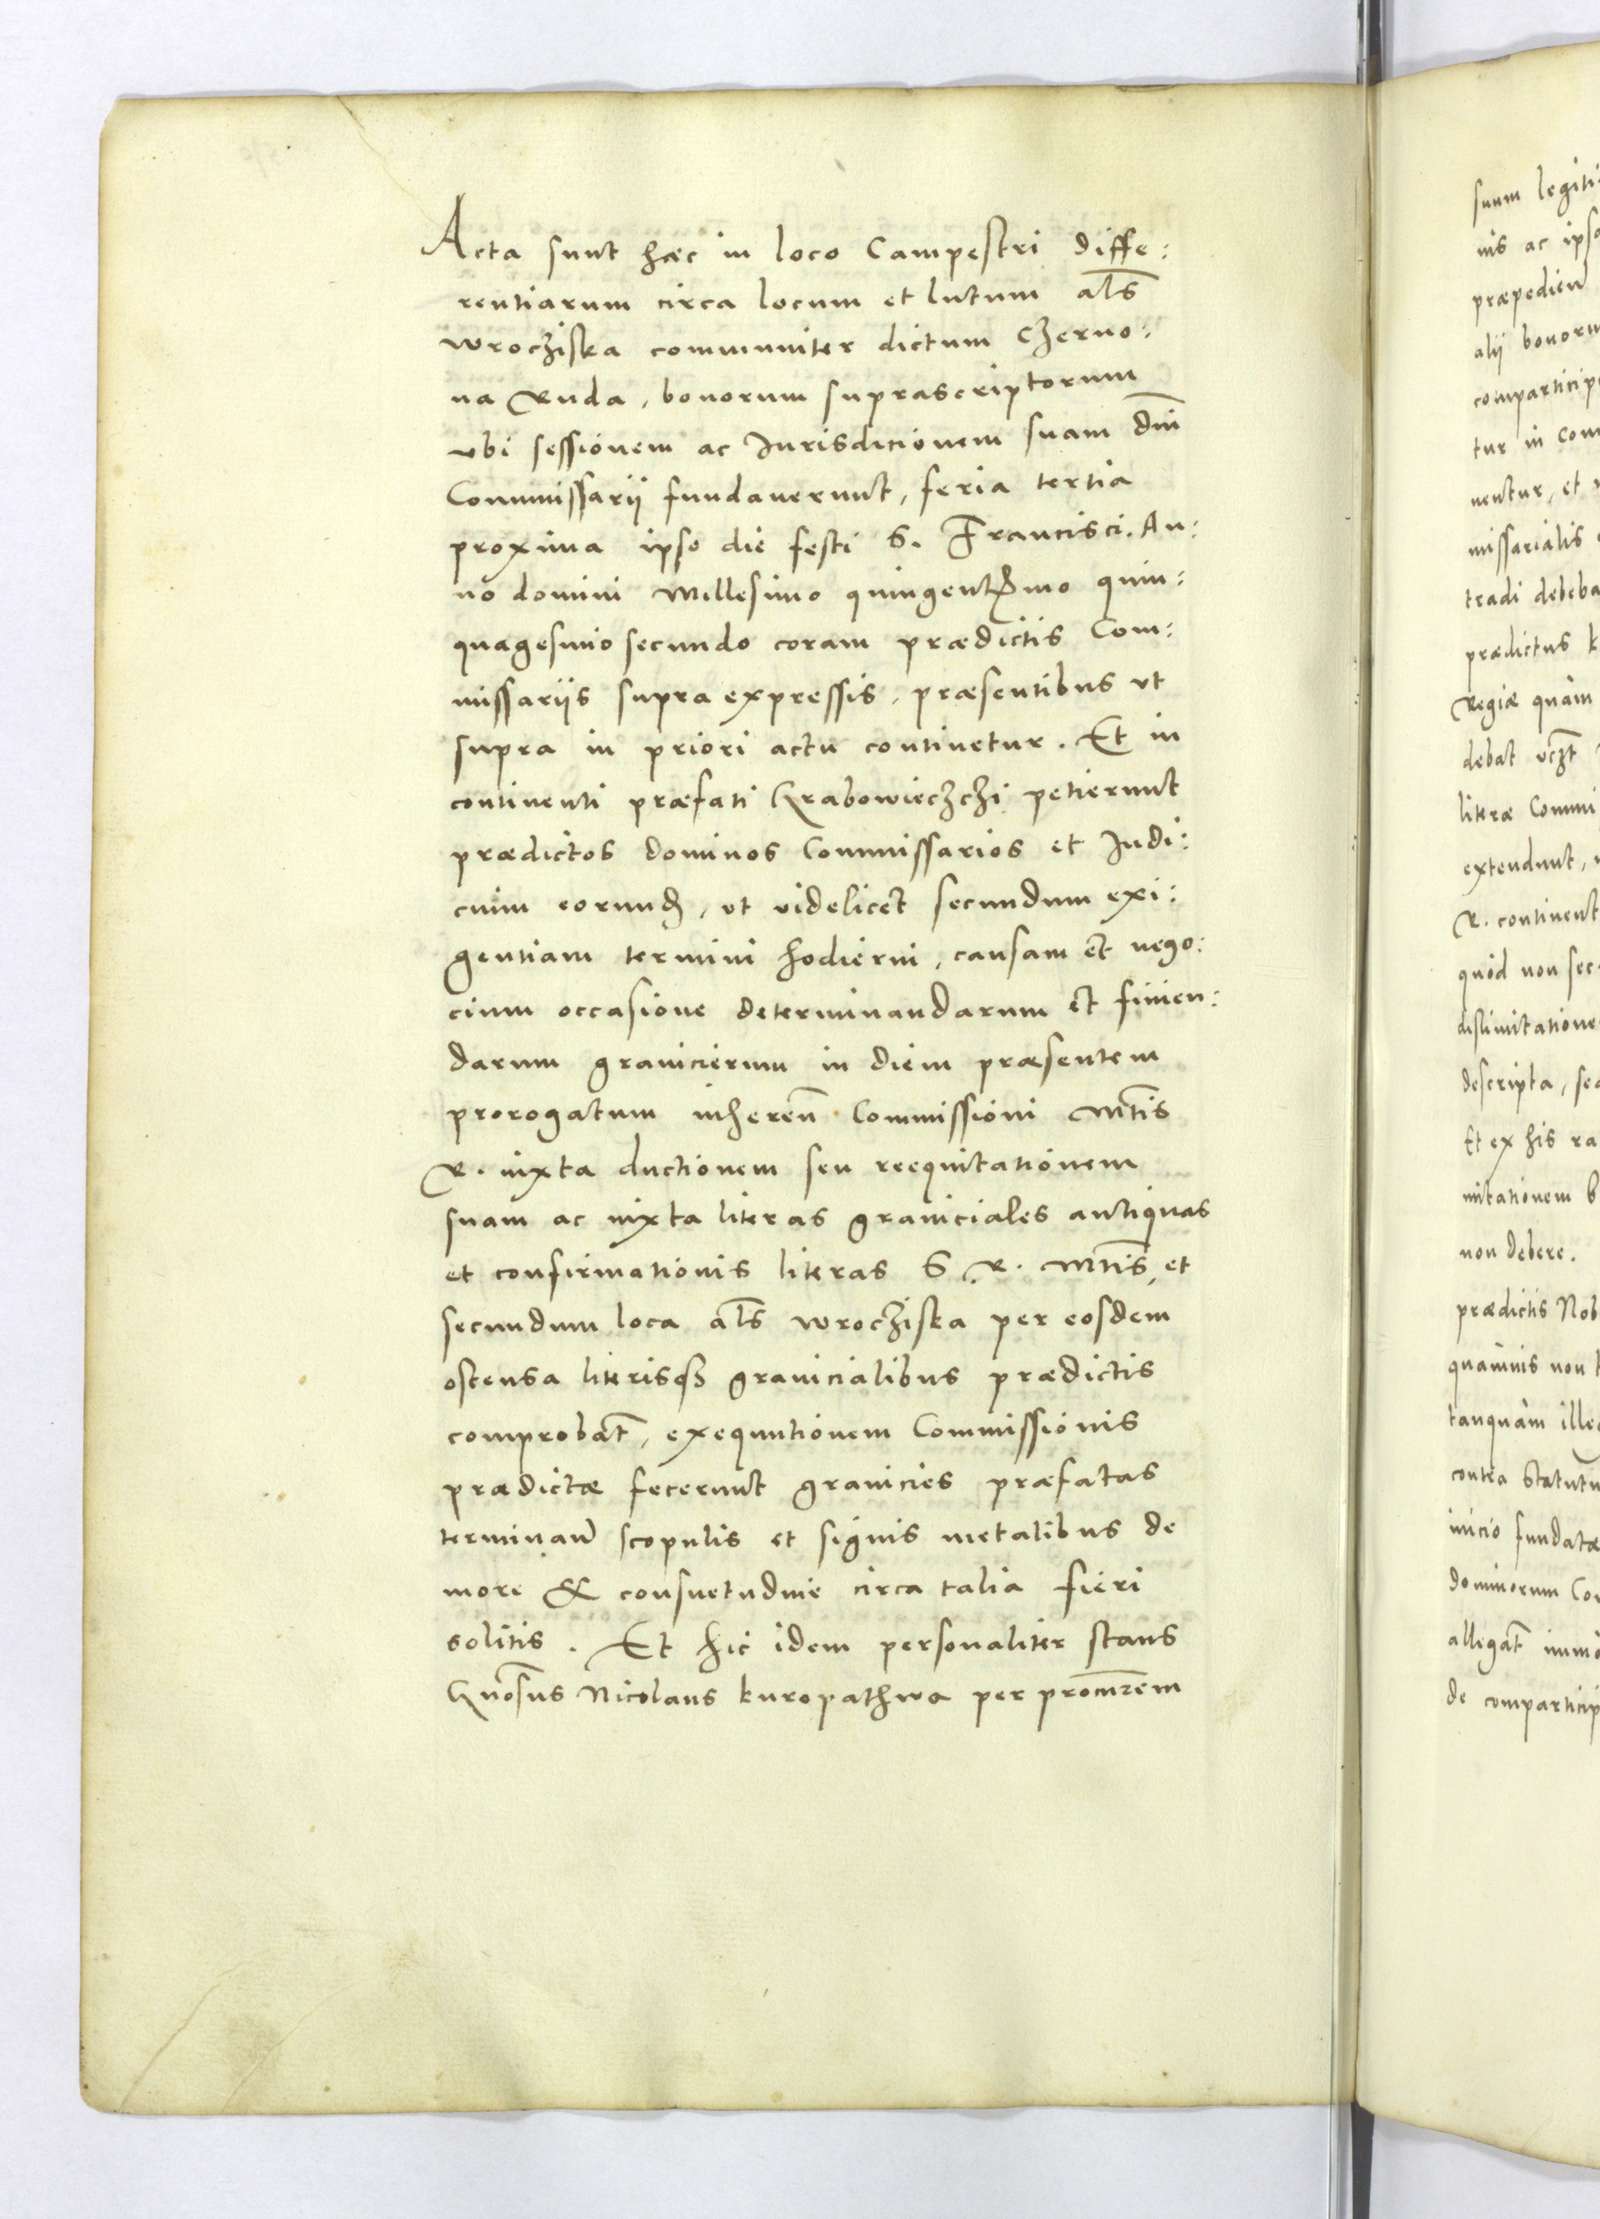 Acta sunt hæc in loco Campestri diffe:
rentiarum circa locum et lutum als
wrocziska communiter dictum Czerno:
na Ruda, bonorum suprascriptorum
vbi sessionem ac Iurisdicionem suam dni
Commissarii fundauerunt, feria tertia
proxima ipso die festi S. Francisci. An:
no domini Millesimo quingentesimo quin:
quagesimo secundo coram prædictis Com:
missariis supra expressis, præsentibus vt
supra in priori actu continetur. Et in
continenti præfati Grabowieczchi petierunt
prædictos dominos Commissarios et Iudi:
cium eorund, vt videlicet secundum exi:
gentiam termini hodierni, causam et nego:
cium occasione determinandarum et finien:
darum granicierum in diem præsentem
prorogatum inheren Commissioni Mtis
R. iuxta ductionem seu reequitationem
suam ac iuxta literas graniciales antiquas
et confirmationis literas S. R. Mtis, et
secundum loca als wrocziska per eosdem
ostensa literisq granicialibus prædictis
comprobat, exequutionem Commissionis
prædictæ fecerunt granicies præfatas
terminan scopulis et signis metalibus de
more & consuetudine circa talia fieri
solitis. Et hic idem personaliter stans
Gnosus Nicolaus kuropathwa per procurem
suum legiti
nis ac ipsa
præpedien
alii bonoru
comparticip
tur in com
nentur, et
missarialis
tradi debeba
prædictus k
Regiæ quàm
debat vczt
literæ Commi
extendunt,
R. continent
quòd non sec
dislimitatione
descripta, sec
Et ex his ra
mitationem b
non debere.
prædictis Nob
quamuis non
tanquàm ille
contra Statutu
inicio fundatæ
dominorum Co
allegat immo
de comparticip